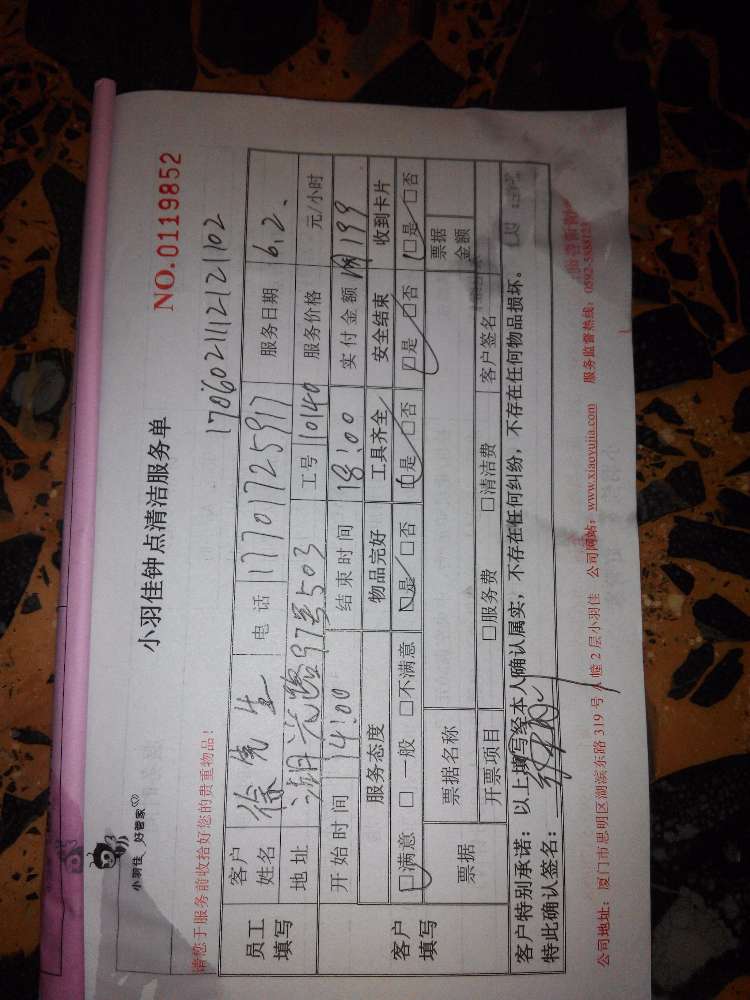 小羽佳 好管家
小羽佳钟点清洁服务单
NO.0119852
请您于服务前收拾好您的贵重物品!
17060211121121102
员工填写
客户姓名 徐先生 电话 17701725917 服务日期 6.2.
地址 湖光路97号503 工号 10140 服务价格 元/小时
开始时间 14:00 结束时间 18:00 实付金额 199
客户填写
服务态度 物品完好 工具齐全 安全结束 收到卡片
□满意 □一般 □不满意 □是 □否 □是 □否 □是 □否 □是 □否
票据 票据名称 票据金额
开票项目 □服务费 □清洁费 客户签名
客户特别承诺:以上填写经本人确认属实,不存在任何纠纷,不存在任何物品损坏。
特此确认签名:
公司地址:厦门市思明区湖滨东路 319 号 A 幢 2 层小羽佳 公司网站:www.xiaoyujia.com 服务监督热线:0592-5888123